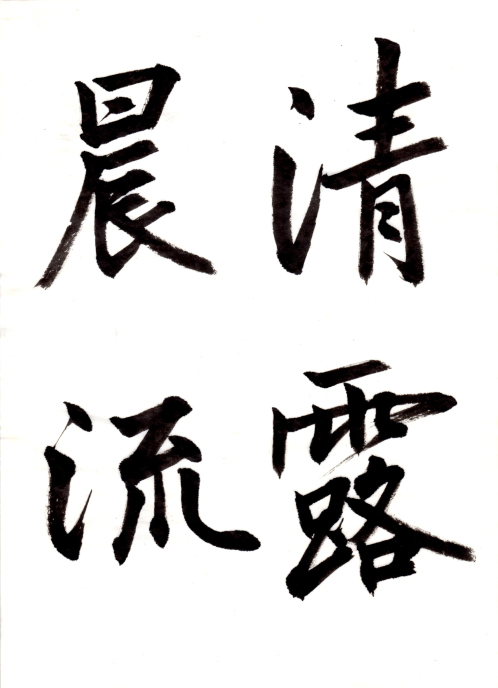 清露
晨流